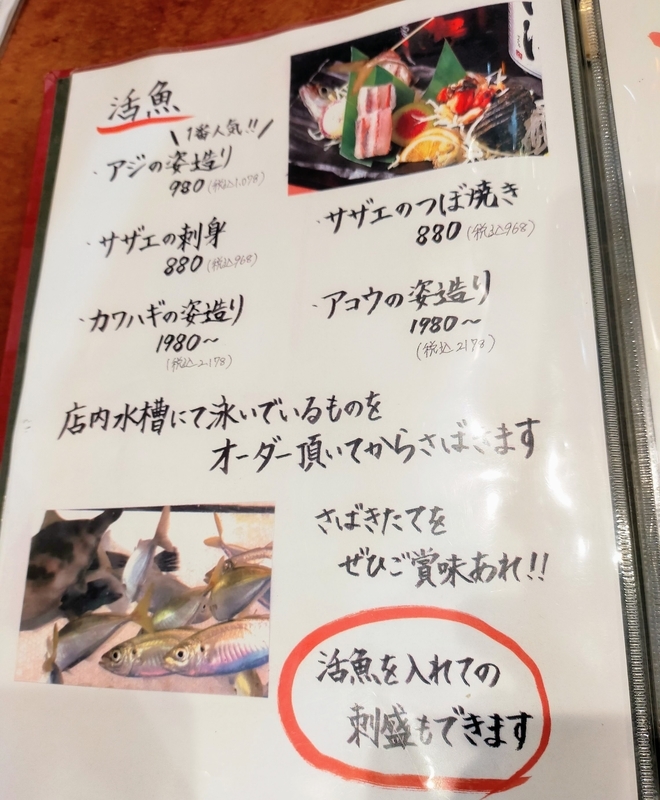 活魚
1番人気!!
・アジの姿造り
980(税込1,078)
・サザエの刺身
880(税込968)
・カワハギの姿造り
1980〜
(税込2178)
・サザエのつぼ焼き
880(税込968)
・アコウの姿造り
1980〜
(税込2178)
店内水槽にて泳いでいるものを
オーダー頂いてからさばきます
さばきたてを
ぜひご賞味あれ!!
活魚を入れての
刺盛もできます